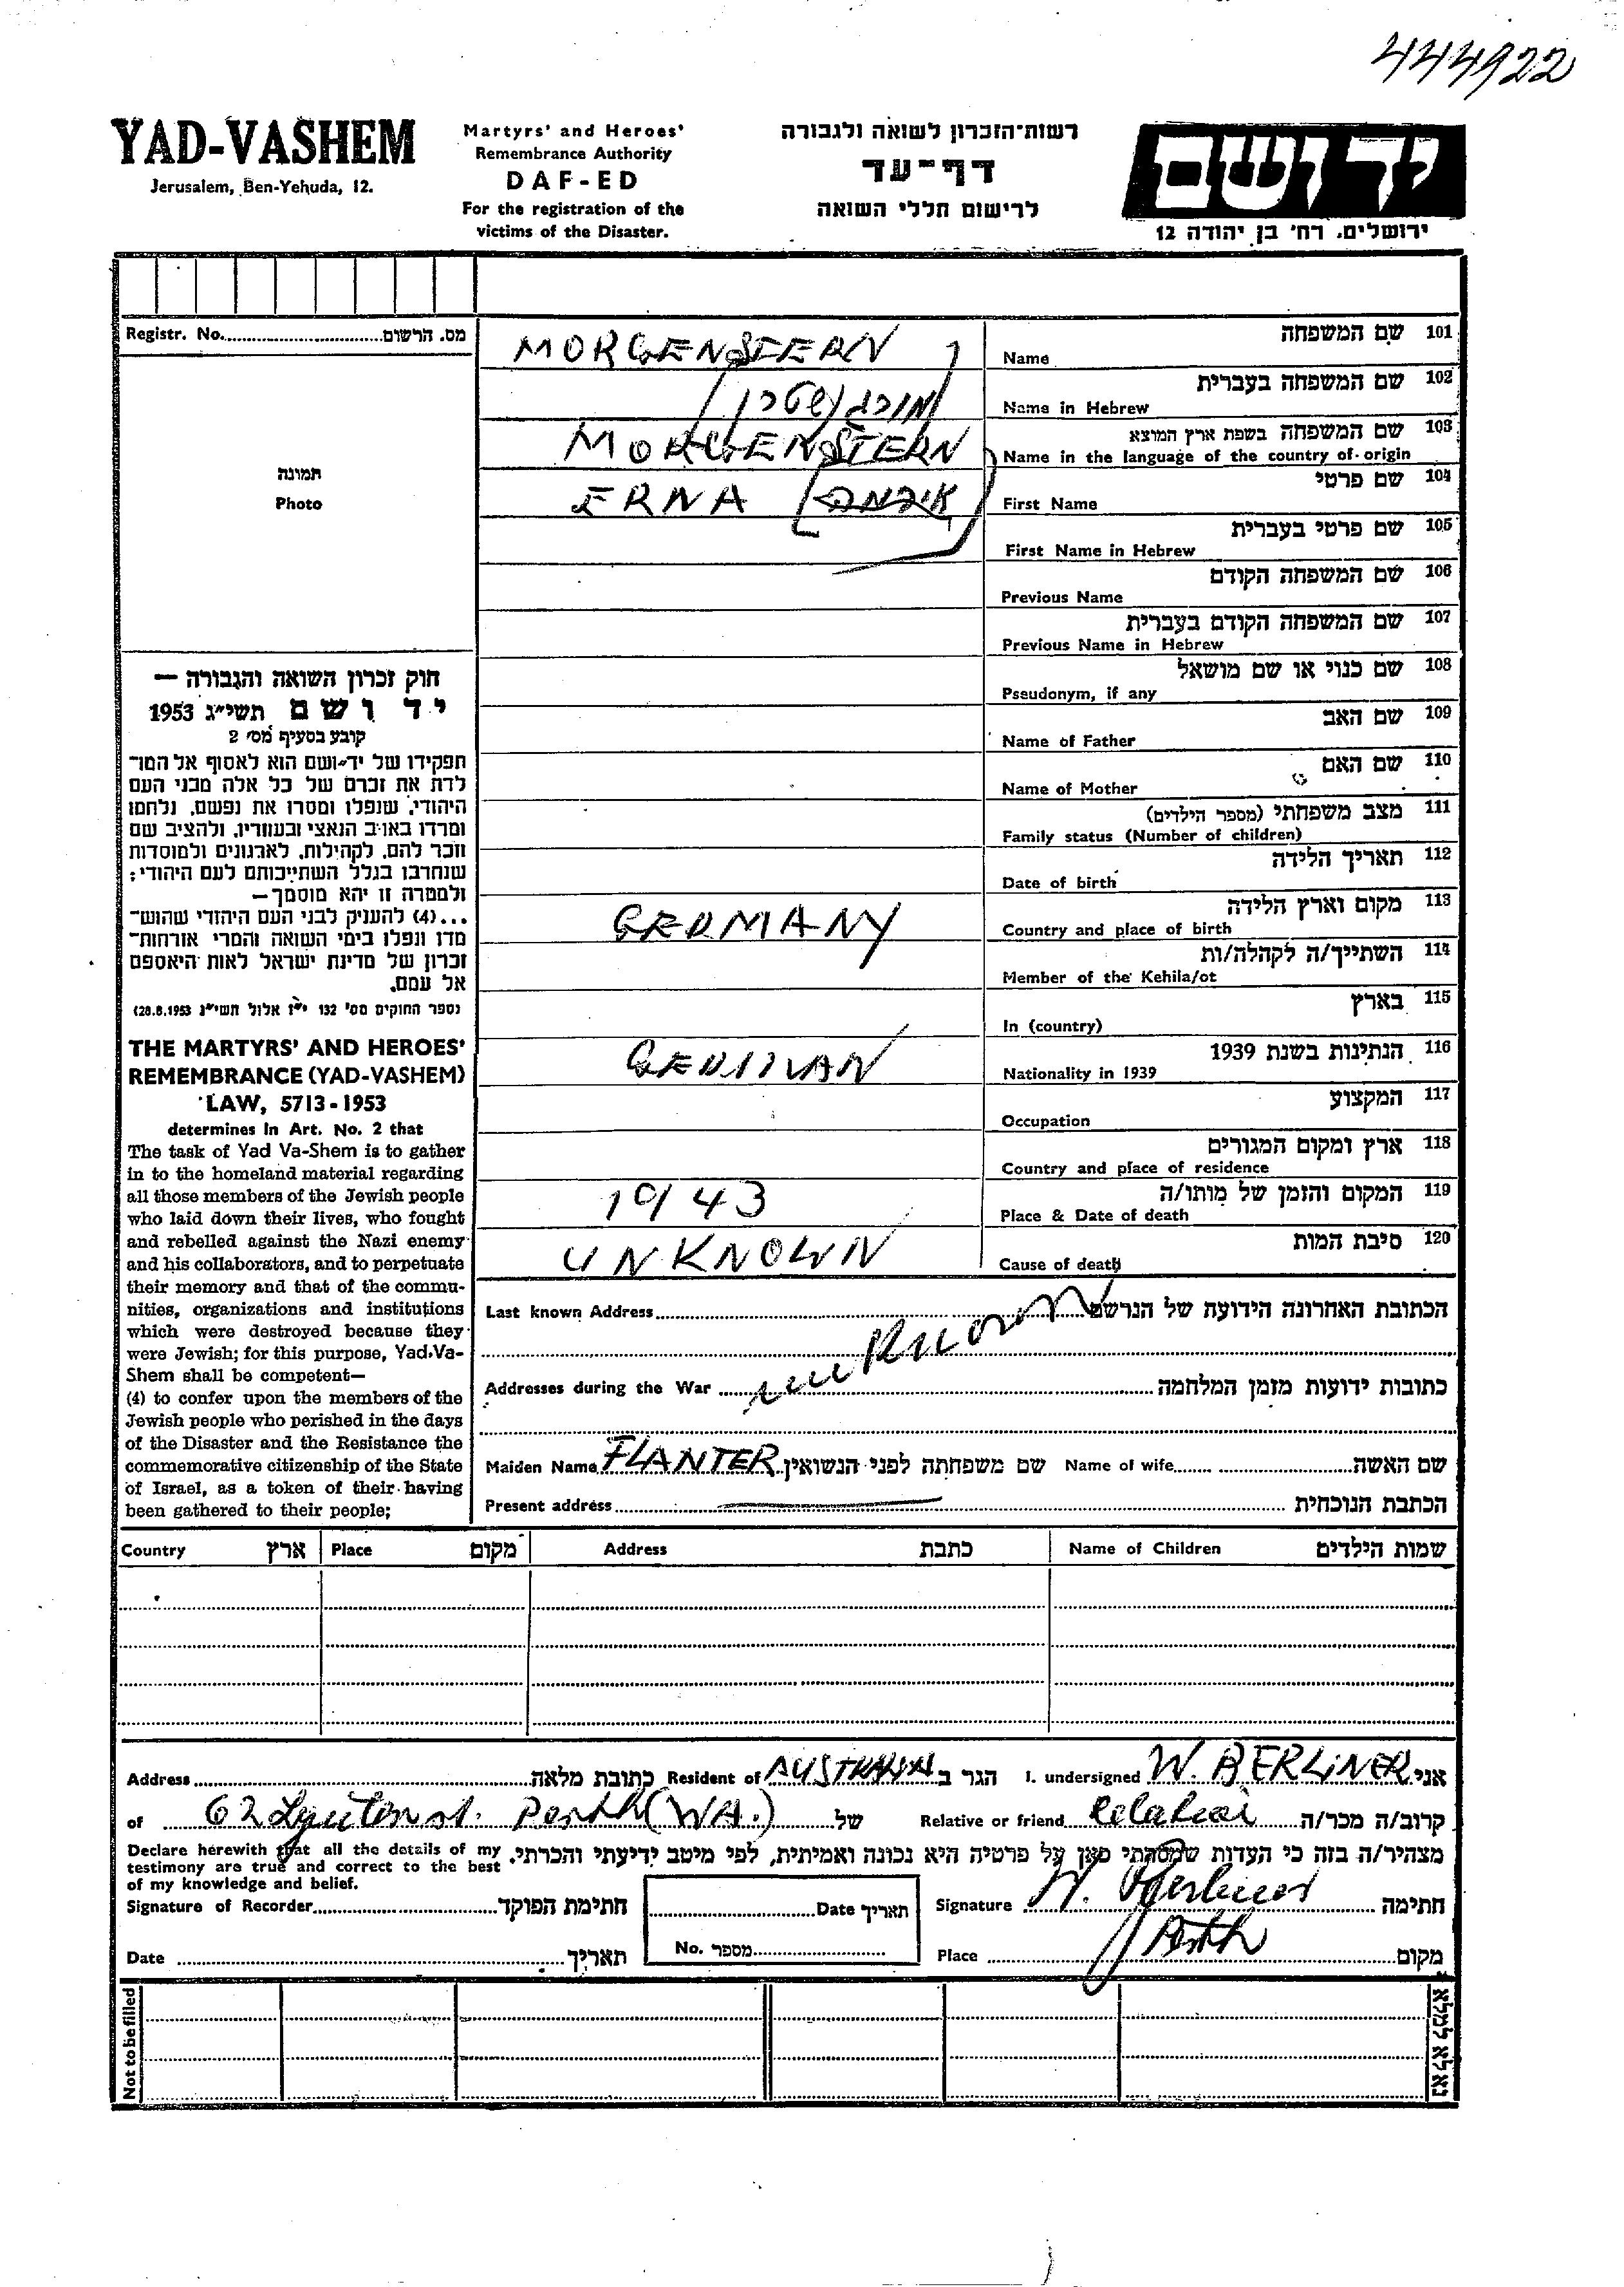 444922
YAD-VASHEM
Jerusalem, Ben-Yehuda, 12.
Martyrs' and Heroes'
Remembrance Authority
DAF-ED
For the registration of the
victims of the Disaster.
רשות־הזכרון לשואה ולגבורה
דף־עד
לרישום חללי השואה
יד ושם
ירושלים, רח' בן יהודה 12
Registr. No. מס. הרשום
תמונה
Photo
חוק זכרון השואה והגבורה —
יד ושם תשי"ג 1953
קובע בסעיף מס' 2
תפקידו של יד־ושם הוא לאסוף אל המו־
לדת את זכרם של כל אלה מבני העם
היהודי, שנפלו ומסרו את נפשם, נלחמו
ומרדו באויב הנאצי ובעוזריו, ולהציב שם
וזכר להם, לקהילות, לארגונים ולמוסדות
שנחרבו בגלל השתייכותם לעם היהודי;
ולמטרה זו יהא מוסמך—
...(4) להעניק לבני העם היהודי שהוש־
מדו ונפלו בימי השואה והמרי אזרחות־
זכרון של מדינת ישראל לאות היאספם
אל עמם.
(ספר החוקים מס' 132 י"ז אלול תשי"ג 28.8.1953)
THE MARTYRS' AND HEROES'
REMEMBRANCE (YAD-VASHEM)
LAW, 5713-1953
determines in Art. No. 2 that
The task of Yad Va-Shem is to gather
in to the homeland material regarding
all those members of the Jewish people
who laid down their lives, who fought
and rebelled against the Nazi enemy
and his collaborators, and to perpetuate
their memory and that of the commu-
nities, organizations and institutions
which were destroyed because they
were Jewish; for this purpose, Yad-Va-
Shem shall be competent—
(4) to confer upon the members of the
Jewish people who perished in the days
of the Disaster and the Resistance the
commemorative citizenship of the State
of Israel, as a token of their having
been gathered to their people;
101 שם המשפחה
Name MORGENSTERN
102 שם המשפחה בעברית
Name in Hebrew מורגנשטרן
103 שם המשפחה בשפת ארץ המוצא
Name in the language of the country of origin MORGENSTERN
104 שם פרטי
First Name ERNA
105 שם פרטי בעברית
First Name in Hebrew
106 שם המשפחה הקודם
Previous Name
107 שם המשפחה הקודם בעברית
Previous Name in Hebrew
108 שם כנוי או שם מושאל
Pseudonym, if any
109 שם האב
Name of Father
110 שם האם
Name of Mother
111 מצב משפחתי (מספר הילדים)
Family status (Number of children)
112 תאריך הלידה
Date of birth
113 מקום וארץ הלידה
Country and place of birth GERMANY
114 השתייך/ה לקהלה/ות
Member of the Kehila/ot
115 בארץ
In (country)
116 הנתינות בשנת 1939
Nationality in 1939 GERMAN
117 המקצוע
Occupation
118 ארץ ומקום המגורים
Country and place of residence
119 המקום והזמן של מותו/ה
Place & Date of death 1943
120 סיבת המות
Cause of death UNKNOWN
Last known Address הכתובת האחרונה הידועת של הנרשם
unknown
Addresses during the War כתובות ידועות מזמן המלחמה
Maiden Name FLANTER שם משפחתה לפני הנשואין Name of wife שם האשה
Present address הכתבת הנוכחית
Country ארץ Place מקום Address כתבת Name of Children שמות הילדים
Address כתובת מלאה Resident of AUSTRALIA הגר ב I. undersigned W. BERLINER אני
of Perth (WA.) של Relative or friend קרוב/ה מכר/ה
Declare herewith that all the details of my
testimony are true and correct to the best
of my knowledge and belief.
מצהיר/ה בזה כי העדות שמסרתי כאן על פרטיה היא נכונה ואמיתית, לפי מיטב ידיעתי והכרתי.
Signature of Recorder חתימת הפוקד Date תאריך Signature W. Berliner חתימה
Date תאריך No. מספר Place Perth מקום
Not to be filled
נא לא למלא